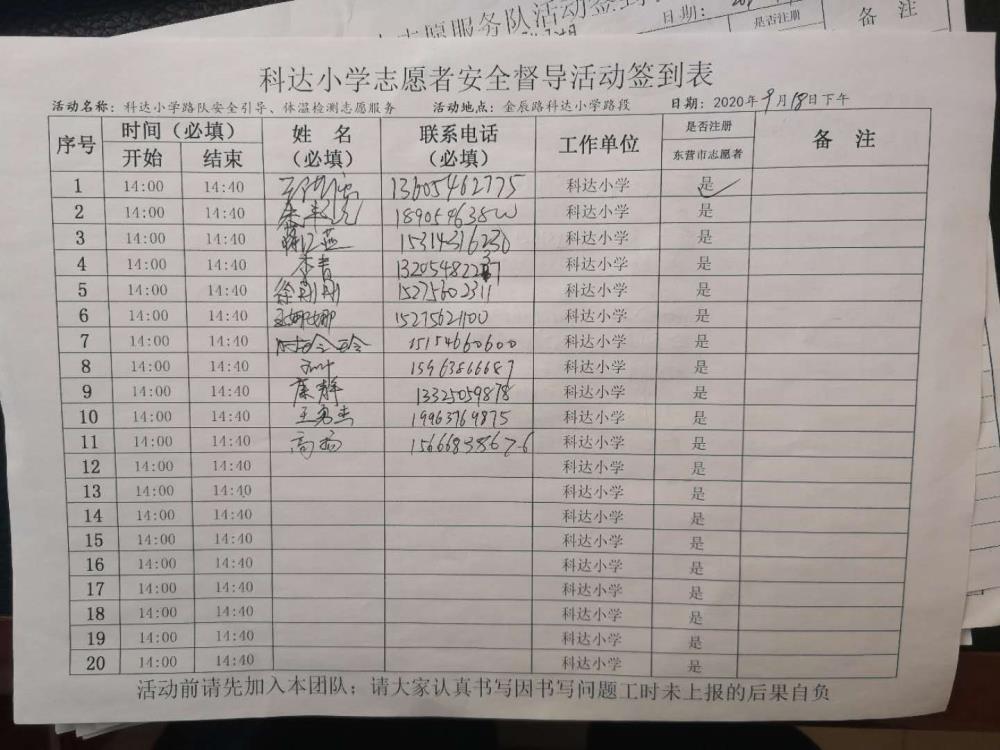 志愿服务队活动签到
日期：
是否注册
备 注
科达小学志愿者安全督导活动签到表
活动名称：科达小学路队安全引导、体温检测志愿服务 活动地点：金辰路科达小学路段 日期：2020年9月18日下午
序号 时间（必填） 姓 名（必填） 联系电话（必填） 工作单位 是否注册 备 注
开始 结束 东营市志愿者
1 14:00 14:40 13605462775 科达小学 是
2 14:00 14:40 科达小学 是
3 14:00 14:40 15314316230 科达小学 是
4 14:00 14:40 李青 科达小学 是
5 14:00 14:40 徐刚刚 15275602311 科达小学 是
6 14:00 14:40 王娜娜 15275621100 科达小学 是
7 14:00 14:40 时玲玲 15154660600 科达小学 是
8 14:00 14:40 15963866687 科达小学 是
9 14:00 14:40 康静 13325059878 科达小学 是
10 14:00 14:40 王勇杰 19963769875 科达小学 是
11 14:00 14:40 高杨 15666838676 科达小学 是
12 14:00 14:40 科达小学 是
13 14:00 14:40 科达小学 是
14 14:00 14:40 科达小学 是
15 14:00 14:40 科达小学 是
16 14:00 14:40 科达小学 是
17 14:00 14:40 科达小学 是
18 14:00 14:40 科达小学 是
19 14:00 14:40 科达小学 是
20 14:00 14:40 科达小学 是
活动前请先加入本团队；请大家认真书写因书写问题工时未上报的后果自负